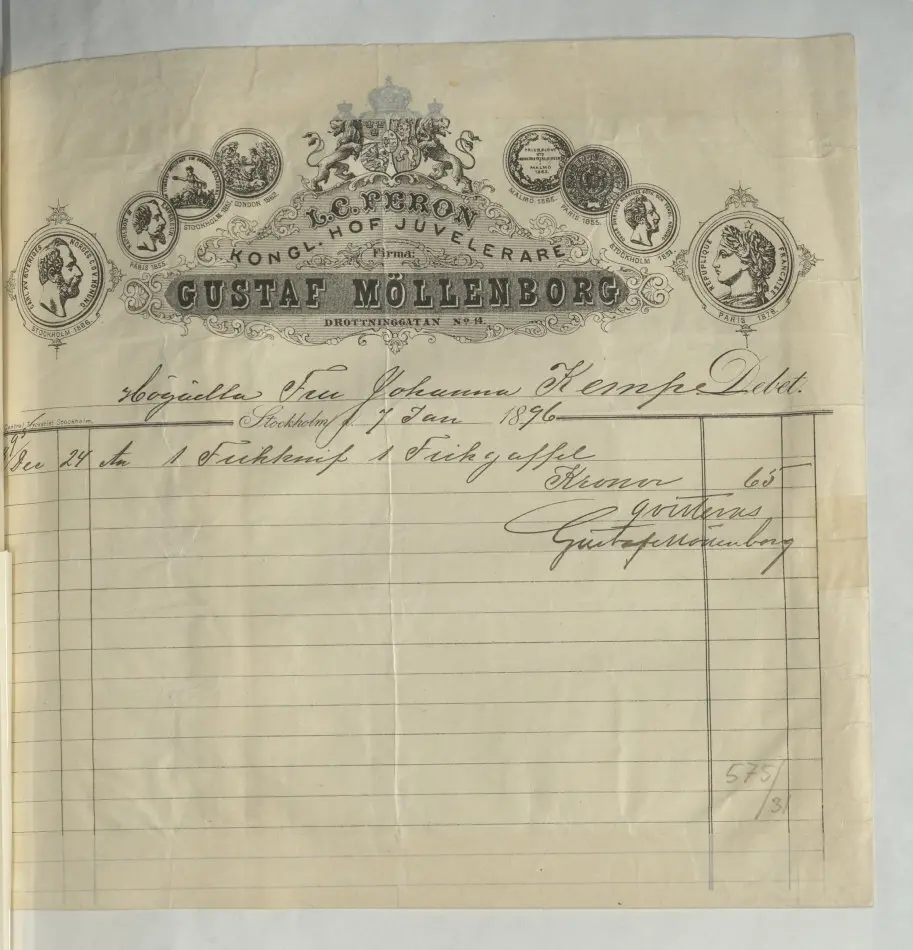 LONDON 1862.
STOCKHOLM
PARIS 1855.
CARL XV SVERIGES NORGES KONUNG
STOCKHOLM 1866.
MALMÖ
MALMÖ 1865.
PARIS 1855.
STOCKHOLM 1851.
REPUBLIQUE FRANÇAISE
PARIS 1878.
L.C. PERON
KONGL. HOF JUVELERARE
Firma:
GUSTAF MÖLLENBORG
DROTTNINGGATAN No 14.
Högädla Fru Johanna Kempe Debet.
Central Tryckeriet Stockholm.
Stockholm d. 7 Jan 1896
95
Dec 24 An 1 Fiskknif 1 Fiskgaffel
Kronor 65
qvitteras
Gustaf Möllenborg
575/31